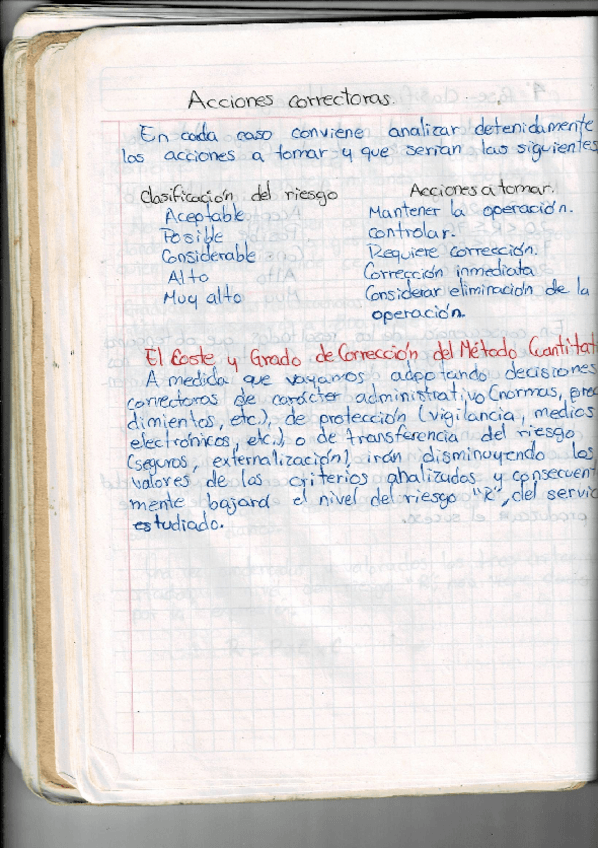 Acciones correctoras.
En cada caso conviene analizar detenidamente
las acciones a tomar y que serian las siguientes
Clasificación del riesgo Acciones a tomar.
Aceptable Mantener la operación.
Posible controlar.
Considerable Requiere corrección.
Alto Corrección inmediata
Muy alto Considerar eliminación de la
operación.
El Coste y Grado de Corrección del Método Cuantitat
A medida que vayamos adoptando decisiones
correctoras de carácter administrativo (normas, proce
dimientos, etc.), de protección (vigilancia, medios
electrónicos, etc.) o de transferencia del riesgo
(seguros, externalización), irán disminuyendo los
valores de los criterios analizados y consecuent
mente bajará el nivel del riesgo "R", del servic
estudiado.